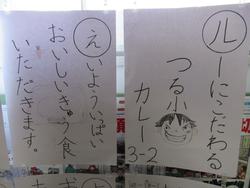 ルーにこだわる
つる小
カレー
3-2
えいよういっぱい
おいしいきゅう食
いただきます。